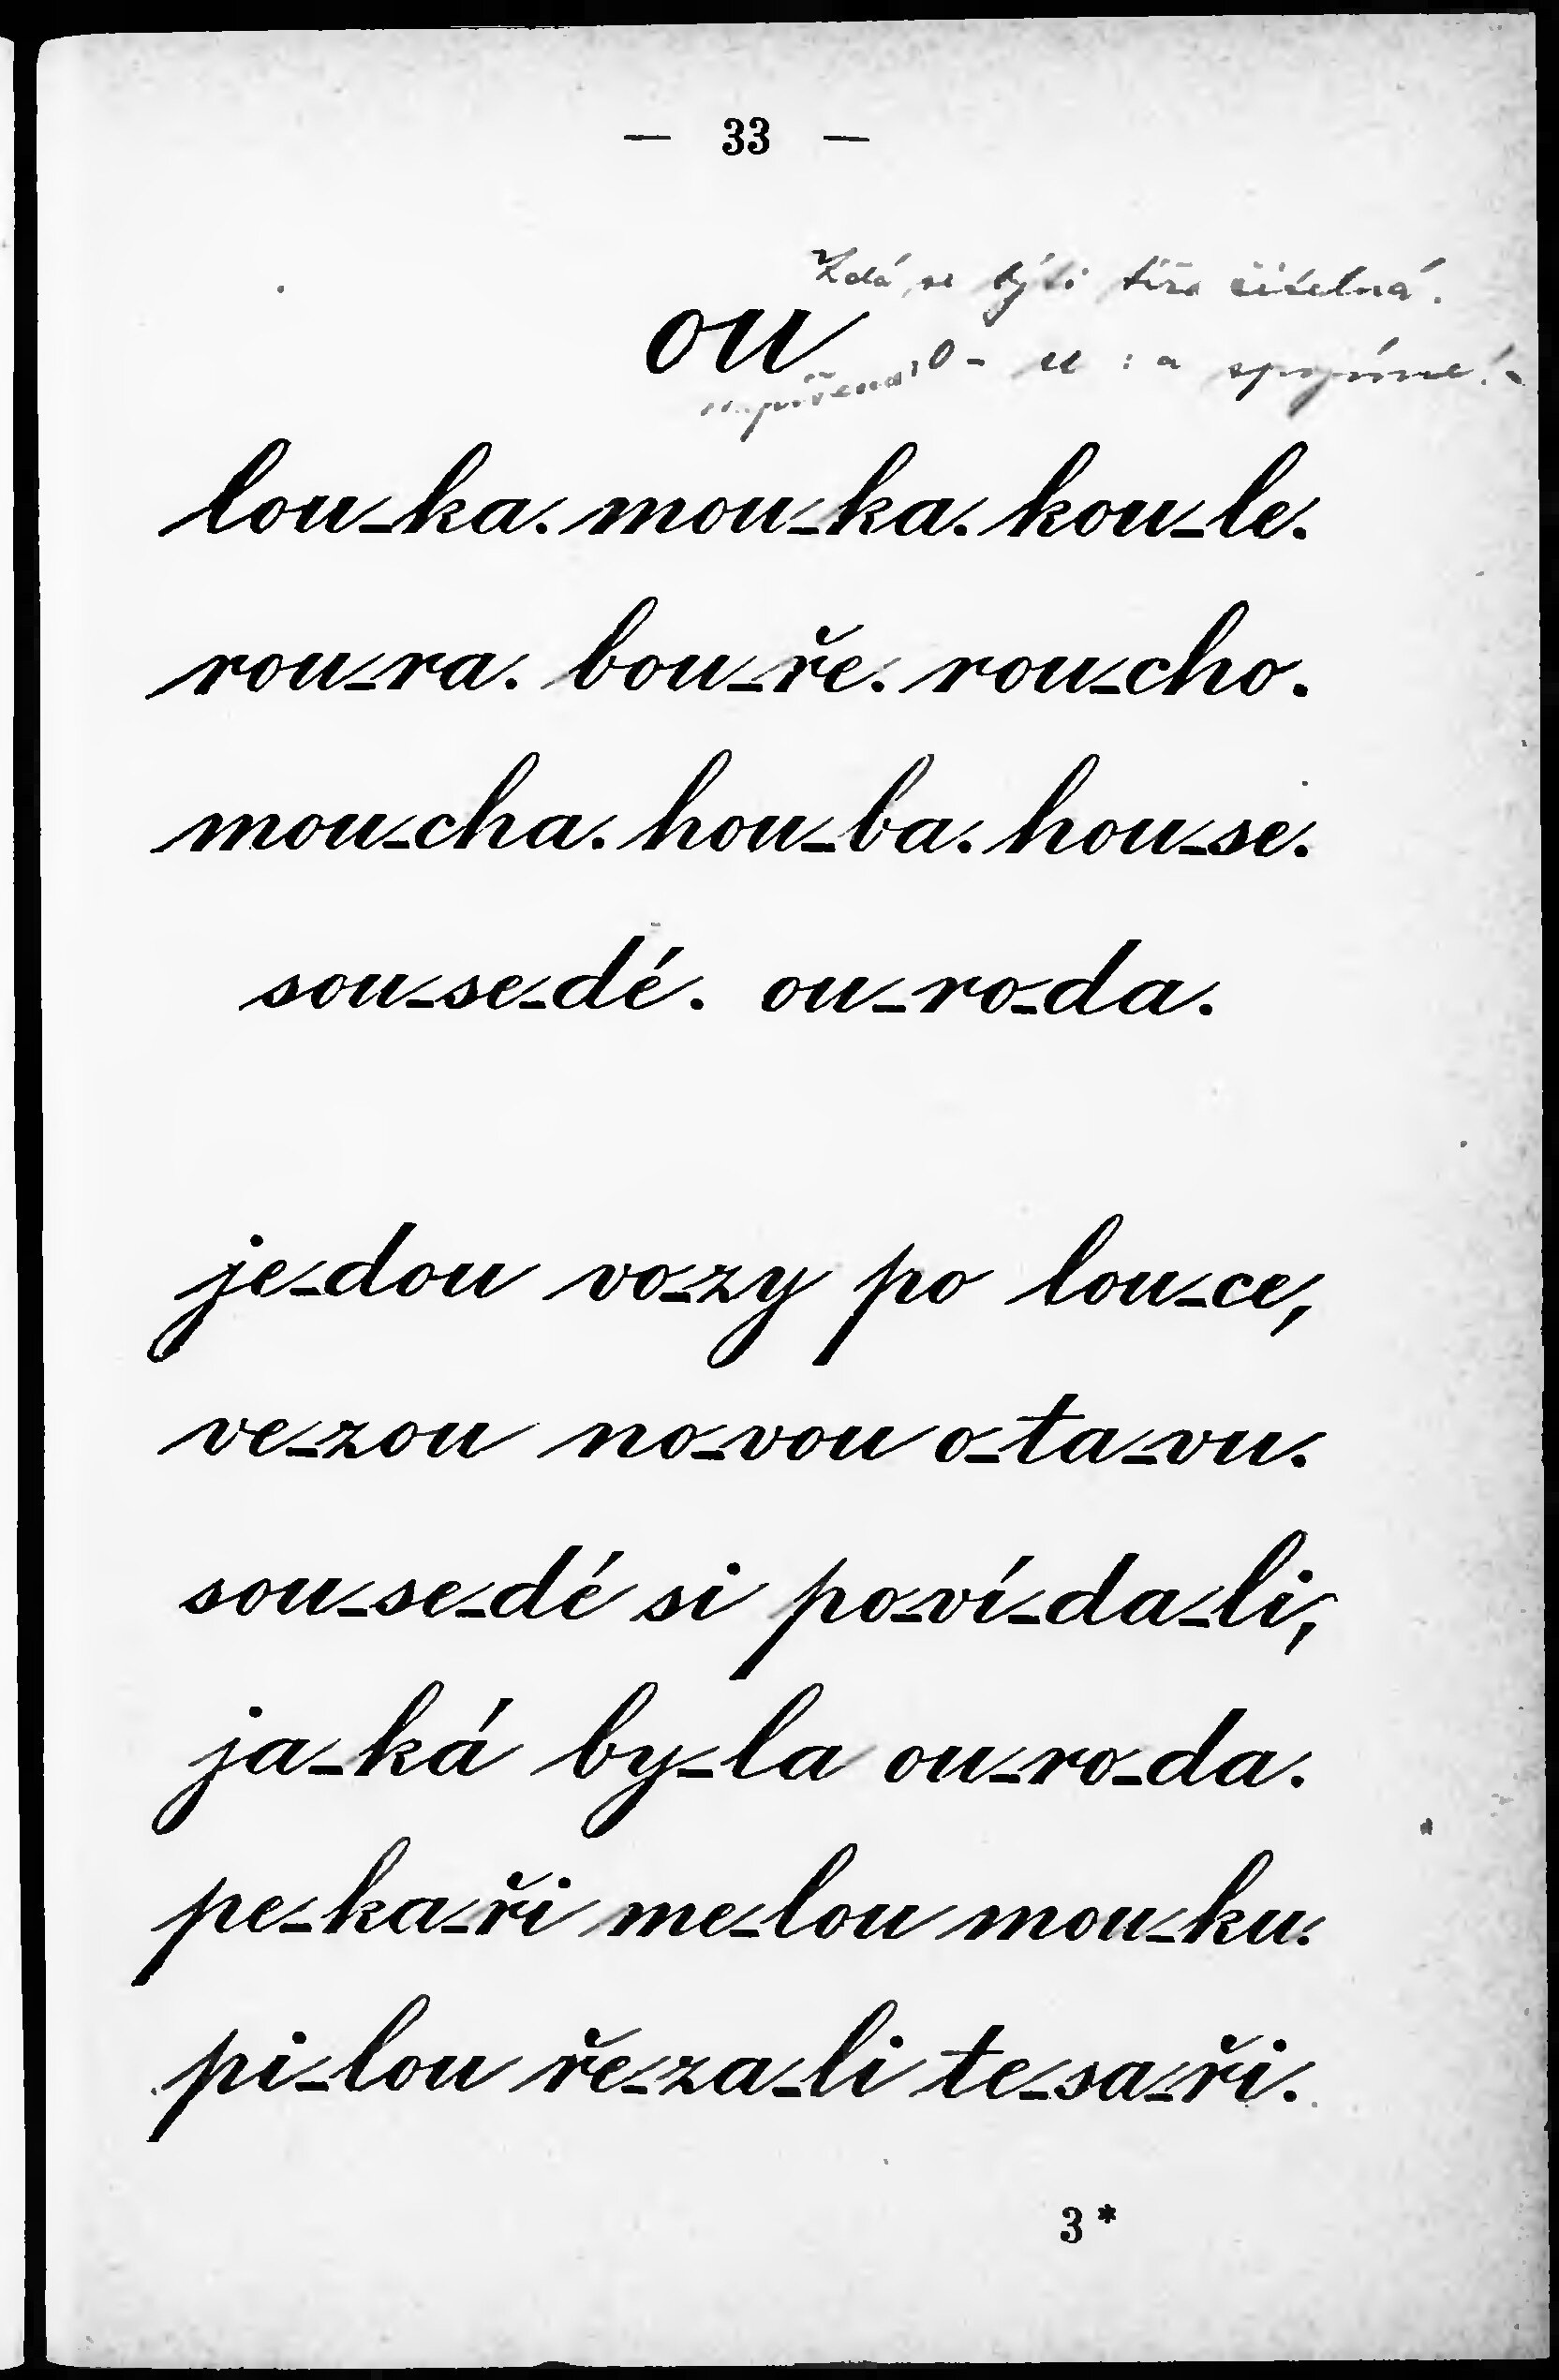 — 33 —
Zdá se býti tíže čitelná.
ou
o - u : a spojíme!
lou-ka. mou-ka. kou-le.
rou-ra. bou-ře. rou-cho.
mou-cha. hou-ba. hou-se.
sou-se-dé. ou-ro-da.
je-dou vo-zy po lou-ce,
ve-zou no-vou o-ta-vu.
sou-se-dé si po-ví-da-li,
ja-ká by-la ou-ro-da.
pe-ka-ři me-lou mou-ku.
pi-lou ře-za-li te-sa-ři.
3*